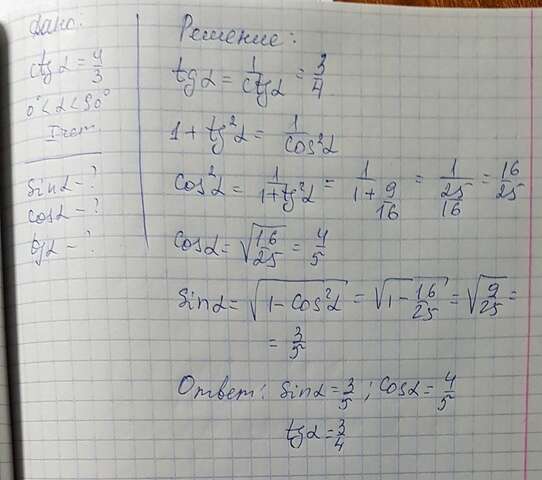 Дано:
ctgα = 4/3
0°<α<90°
I чет
sinα - ?
cosα - ?
tgα - ?
Решение:
tgα = 1/ctgα = 3/4
1 + tg²α = 1/cos²α
cos²α = 1/(1+tg²α) = 1/(1+9/16) = 1/(25/16) = 16/25
cosα = √(16/25) = 4/5
sinα = √(1-cos²α) = √(1-16/25) = √(9/25) =
= 3/5
Ответ: sinα = 3/5 ; cosα = 4/5
tgα = 3/4